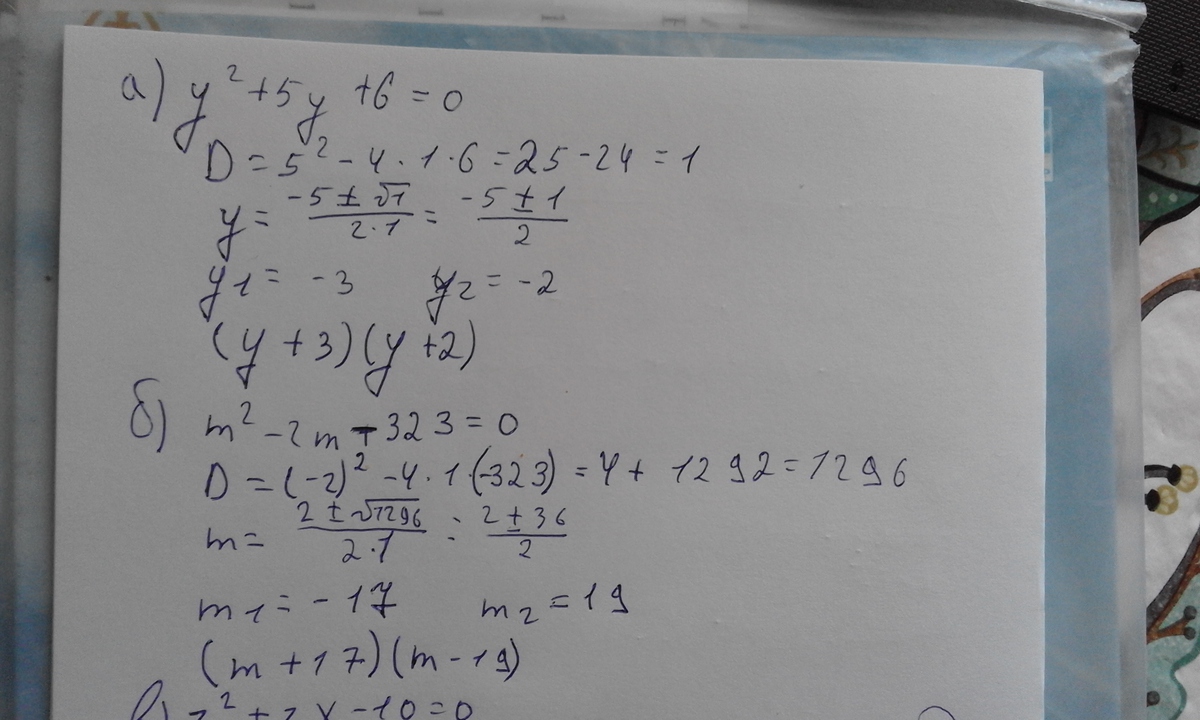 а) y² + 5y + 6 = 0
D = 5² - 4 · 1 · 6 = 25 - 24 = 1
y = (-5 ± √1)/(2·1) = (-5 ± 1)/2
y₁ = -3 y₂ = -2
(y + 3)(y + 2)
б) m² - 2m - 323 = 0
D = (-2)² - 4 · 1 (-323) = 4 + 1292 = 1296
m = (2 ± √1296)/(2·1) = (2 ± 36)/2
m₁ = -17 m₂ = 19
(m + 17)(m - 19)
-10 = 0